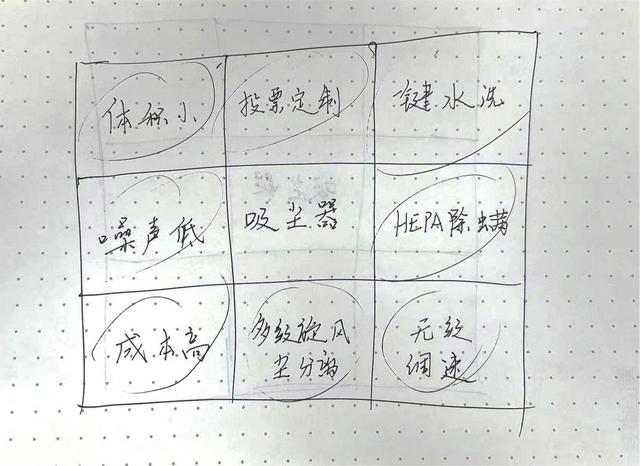 体积小
投票定制
键水洗
噪声低
吸尘器
HEPA除螨
成本高
多级旋风
尘分离
无级
调速